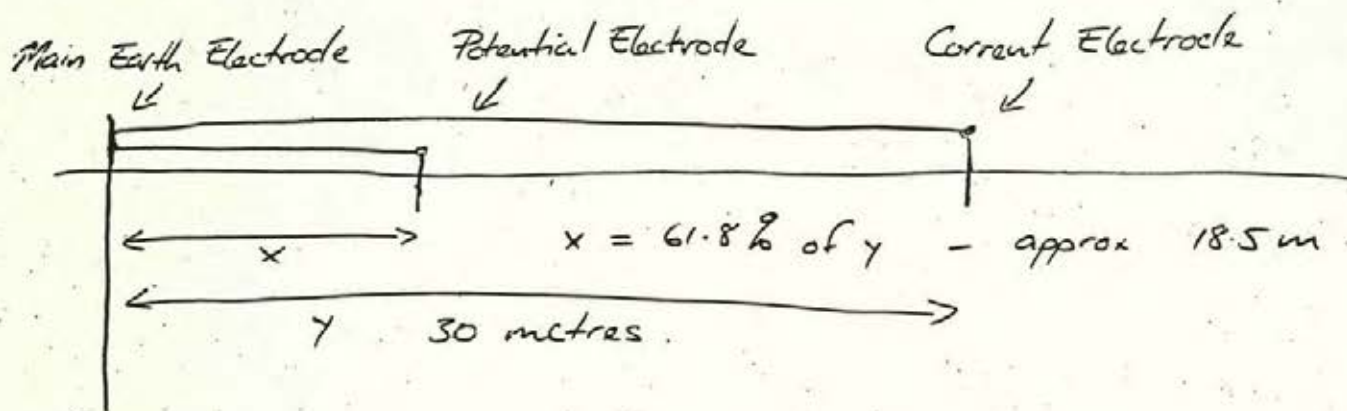 Main Earth Electrode Potential Electrode Current Electrode
x x = 61.8% of y - approx 18.5 m.
y 30 metres.